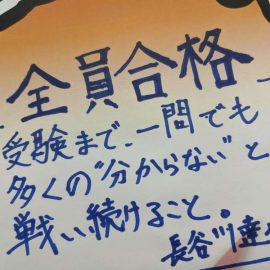 全員合格
受験まで、一問でも
多くの"分からない"と
戦い続けること。
長谷川達